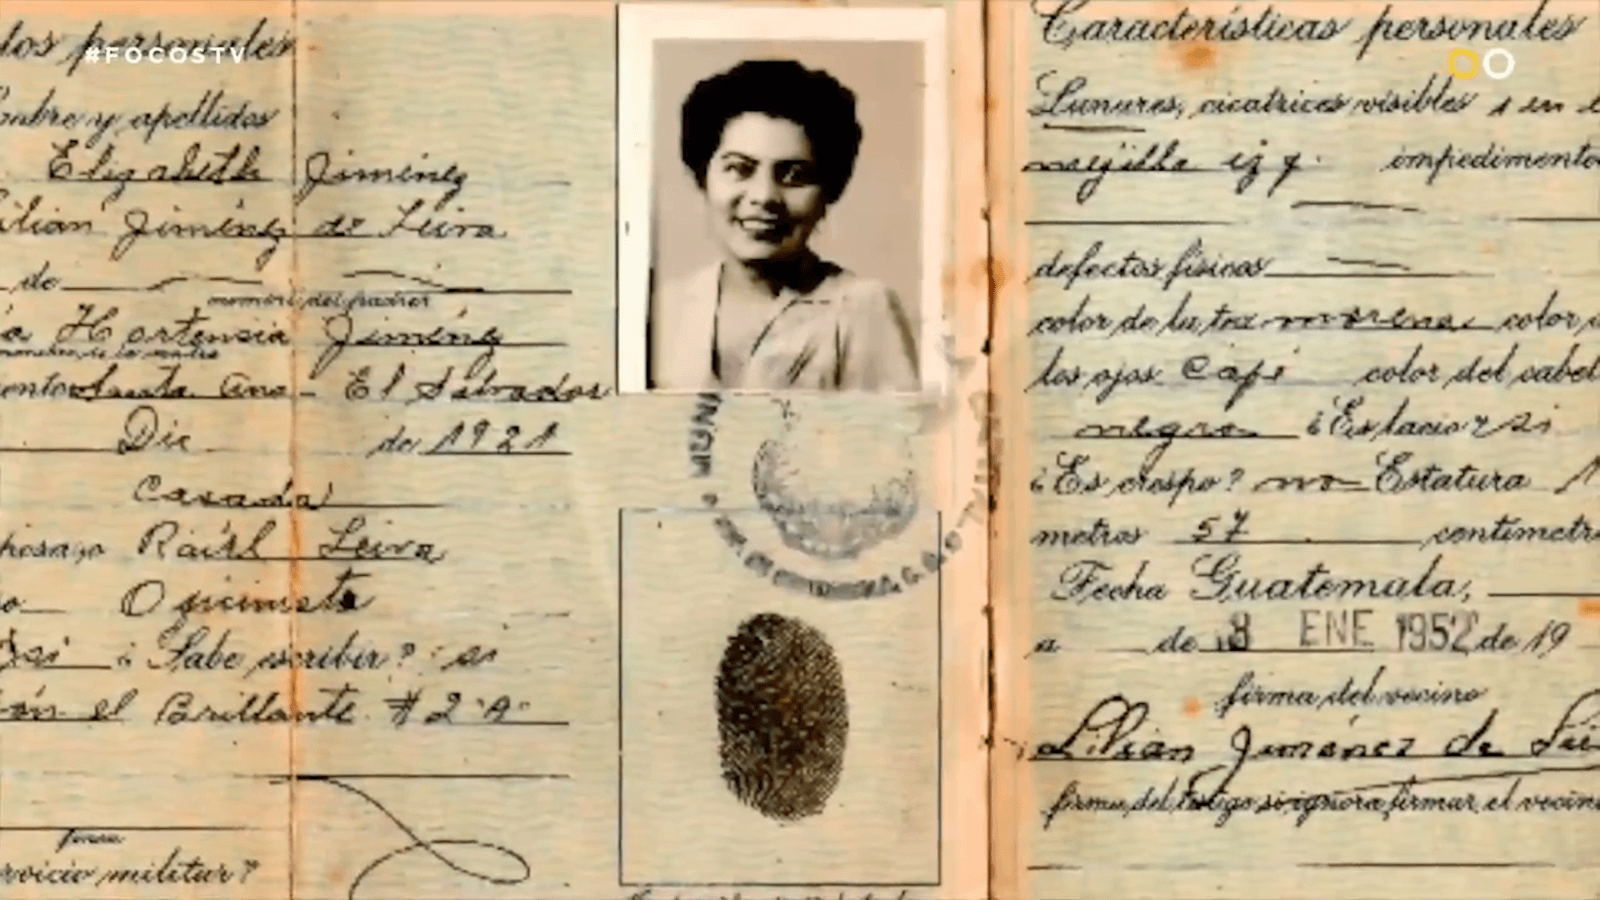 #FOCOSTV
tos personales
ombre y apellidos
Elizabeth Jiménez
ilian Jiménez de Leiva
de
nombre del padre
a Hortensia Jiménez
nombre de la madre
ento Santa Ana - El Salvador
Dic de 1921
Casada
esposa/o Raúl Leiva
o Oficinista
si ¿Sabe escribir? si
ón el Brillante #2 "A"
firma
rvicio militar?
Características personales
Lunares, cicatrices visibles 1 en
mejilla izq. impedimento
defectos físicos
color de la tez morena color
los ojos Café color del cabel
negro ¿Es lacio? si
¿Es crespo? no Estatura 1
metros 57 centímetr
Fecha Guatemala,
a de 8 ENE 1952 de 19
firma del vecino
Lilian Jiménez de Lei
firma del testigo si ignora firmar el vecino